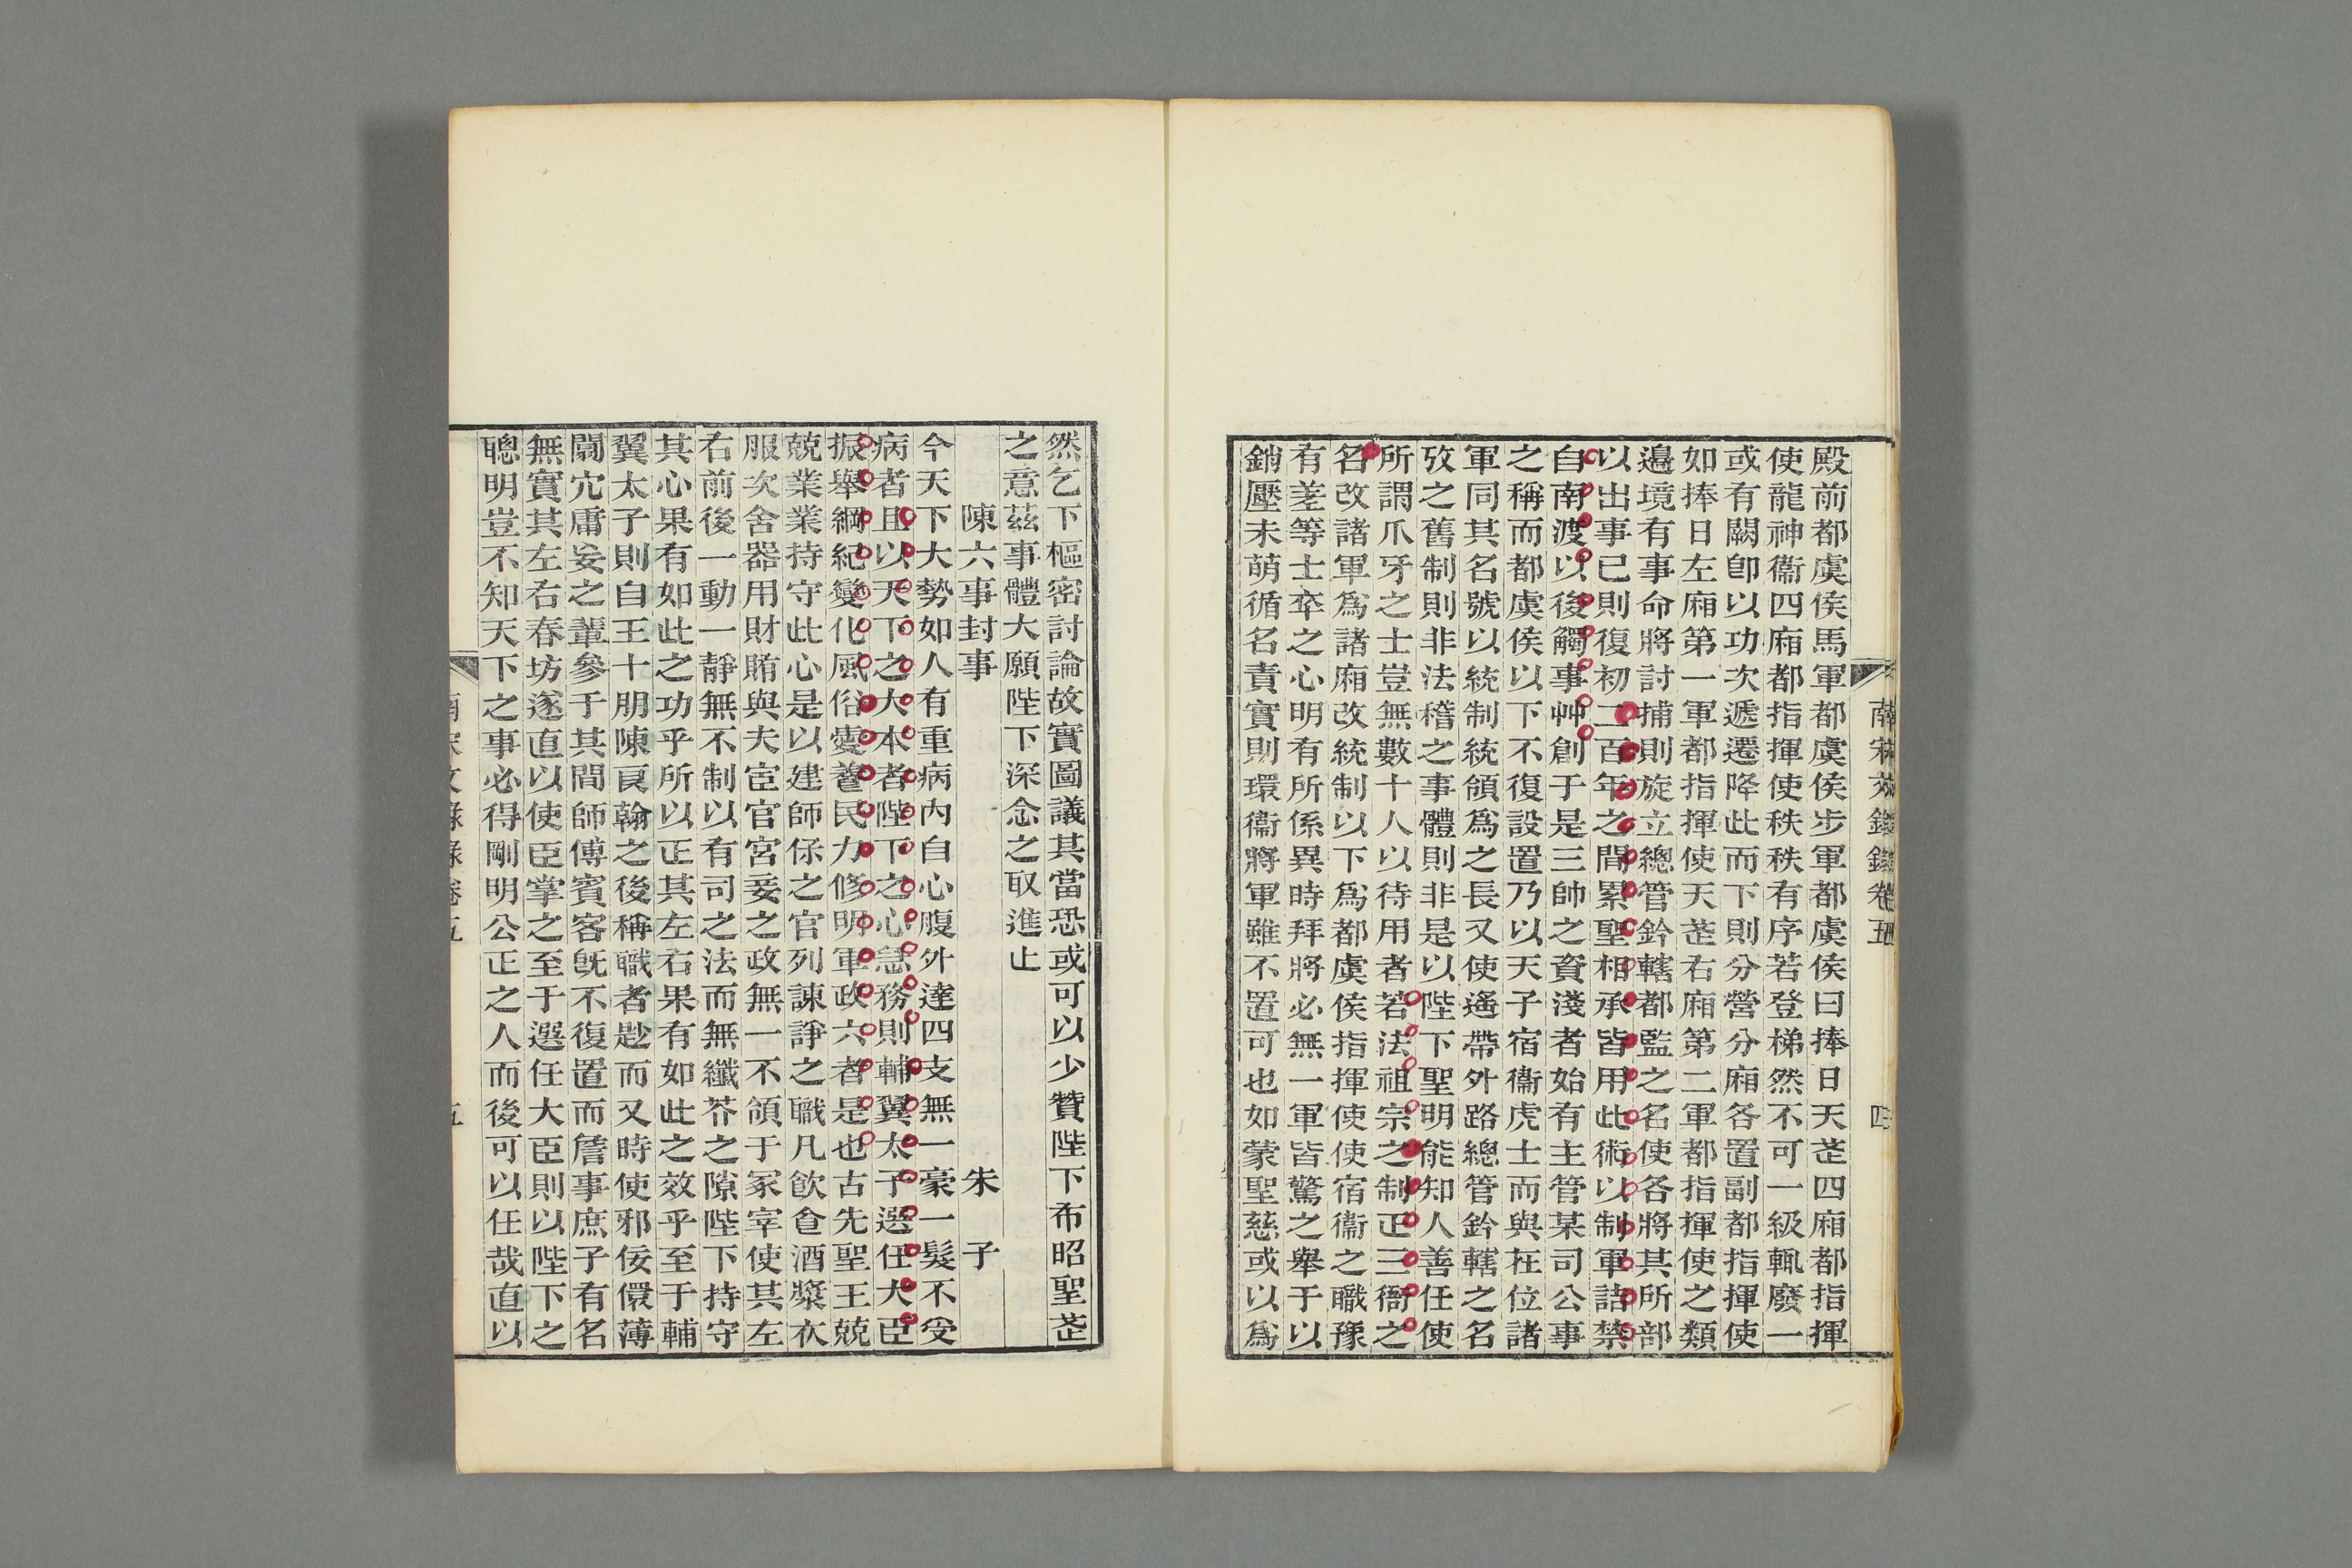 殿前都虞侯馬軍都虞侯步軍都虞侯曰捧日天𦱤四廂都指揮
使龍神衞四廂都指揮使秩秩有序若登梯然不可一級輒廢一
或有闕卽以功次遞遷降此而下則分營分廂各置副都指揮使
如捧日左廂第一軍都指揮使天𦱤右廂第二軍都指揮使之類
邊境有事命將討捕則旋立總管鈐轄都監之名使各將其所部
以出事已則復初二百年之間累聖相承皆用此術以制軍詰禁
自南渡以後觸事艸創于是三帥之資淺者始有主管某司公事
之稱而都虞侯以下不復設置乃以天子宿衞虎士而與在位諸
軍同其名號以統制統領爲之長又使遙帶外路總管鈐轄之名
攷之舊制則非法稽之事體則非是以陛下聖明能知人善任使
所謂爪牙之士豈無數十人以待用者若法祖宗之制正三衙之
名改諸軍爲諸廂改統制以下爲都虞侯指揮使使宿衞之職豫
有差等士卒之心明有所係異時拜將必無一軍皆驚之舉于以
銷壓未萌循名責實則環衞將軍雖不置可也如蒙聖慈或以爲
然乞下樞密討論故實圖議其當恐或可以少贊陛下布昭聖𦱤
之意茲事體大願陛下深念之取進止
陳六事封事 朱子
今天下大勢如人有重病內自心腹外達四支無一豪一髮不受
病者且以天下之大本者陛下之心急務則輔翼太子選任大臣
振舉綱紀變化風俗愛養民力修明軍政六者是也古先聖王兢
兢業業持守此心是以建師保之官列諫諍之職凡飮食酒漿衣
服次舍器用財賄與夫宦官宮妾之政無一不領于冢宰使其左
右前後一動一靜無不制以有司之法而無纖芥之隙陛下持守
其心果有如此之功乎所以正其左右果有如此之效乎至于輔
翼太子則自王十朋陳良翰之後稱職者尟而又時使邪佞儇薄
闒宂庸妄之輩參于其間師傅賓客旣不復置而詹事庶子有名
無實其左右春坊遂直以使臣掌之至于選任大臣則以陛下之
聰明豈不知天下之事必得剛明公正之人而後可以任哉直以